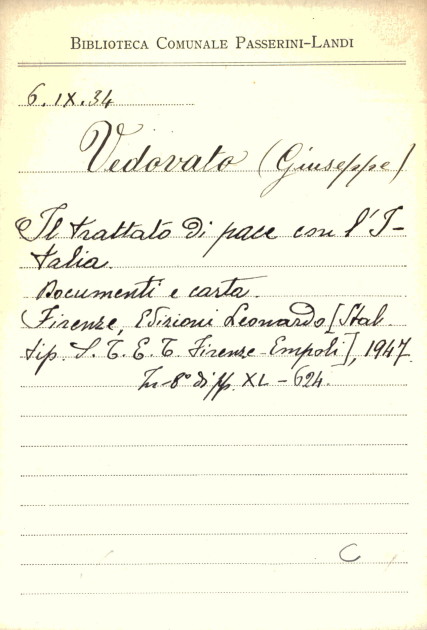 BIBLIOTECA COMUNALE PASSERINI-LANDI
6. IX. 34
Vedovato (Giuseppe)
Il trattato di pace con l'I-
talia.
Documenti e carta.
Firenze, Edizioni Leonardo [Stab.
tip. S. T. E. T. Firenze-Empoli], 1947.
In-8° di pp. XL-624.
C